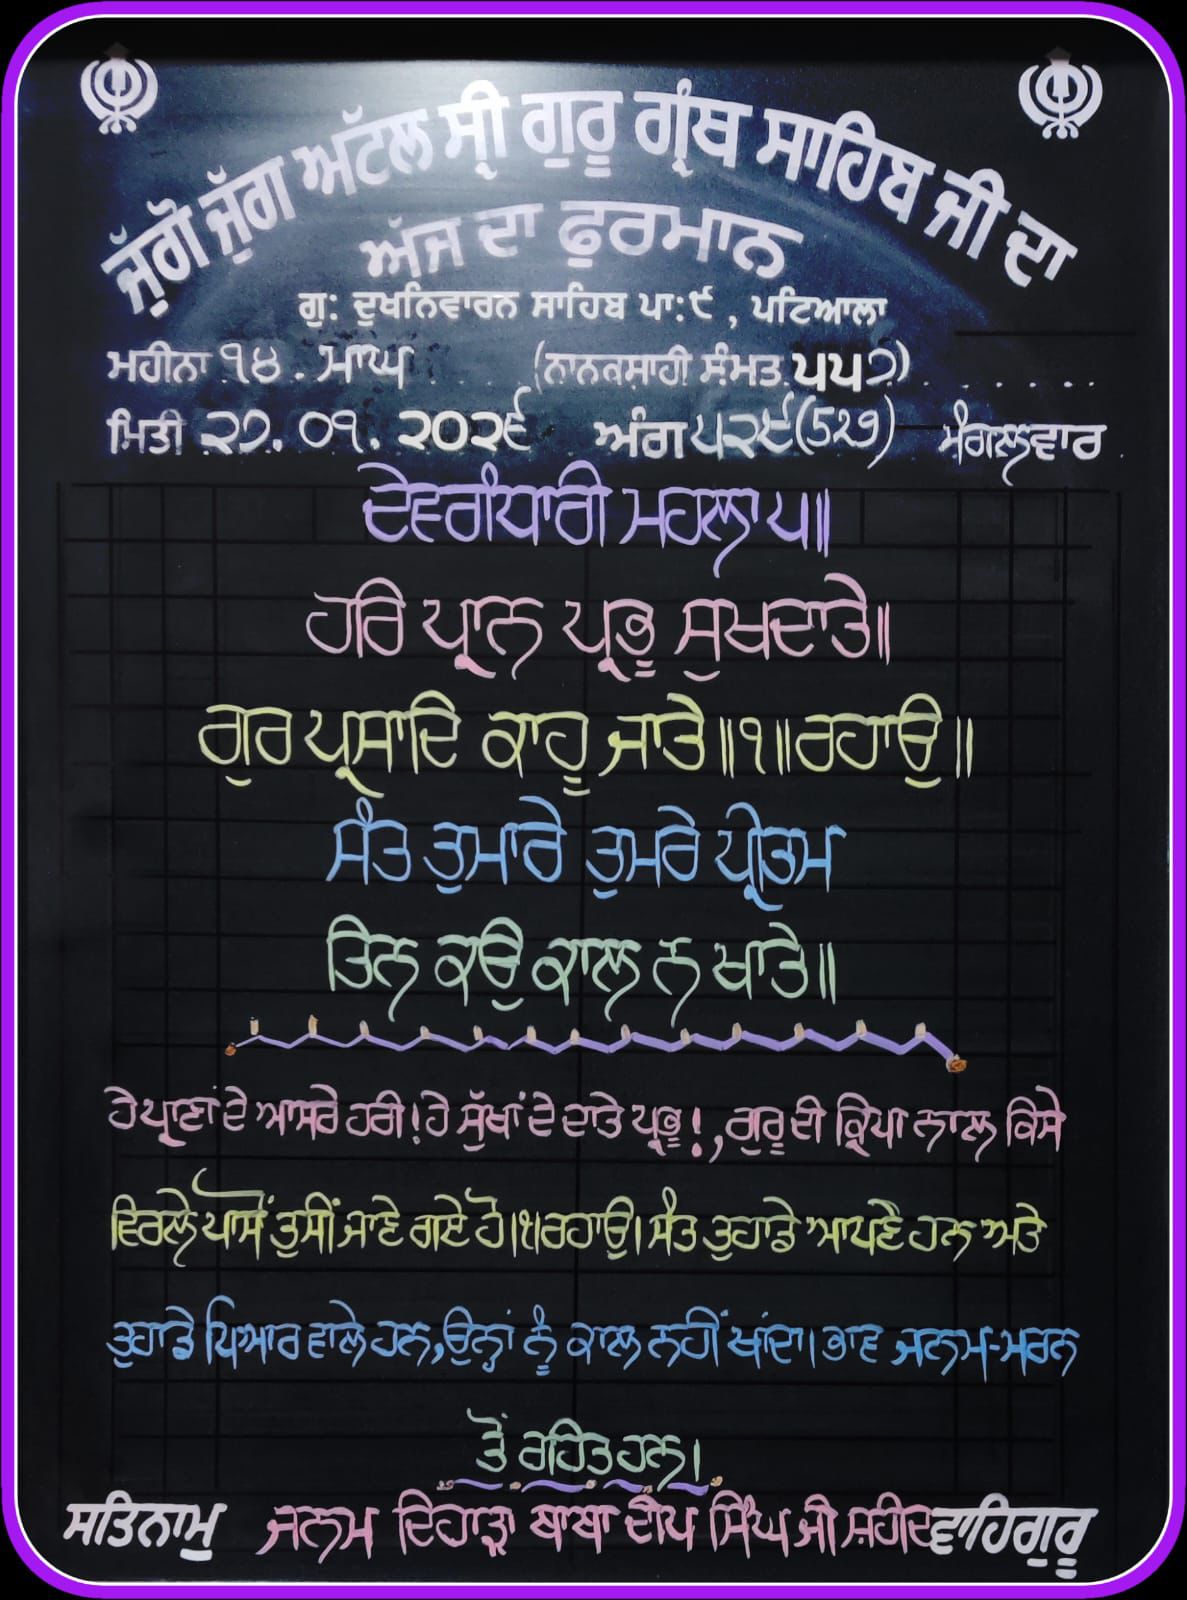 ਜੁੱਗੋ ਜੁੱਗ ਅੱਟਲ ਸ੍ਰੀ ਗੁਰੂ ਗ੍ਰੰਥ ਸਾਹਿਬ ਜੀ ਦਾ
ਅੱਜ ਦਾ ਫੁਰਮਾਨ
ਗੁ: ਦੁਖਨਿਵਾਰਨ ਸਾਹਿਬ ਪਾ:੯ , ਪਟਿਆਲਾ
ਮਹੀਨਾ ੧੪ . ਮਾਘ (ਨਾਨਕਸ਼ਾਹੀ ਸੰਮਤ ੫੫੭)
ਮਿਤੀ ੨੭. ੦੧. ੨੦੨੬ ਅੰਗ ੫੨੯(529) ਮੰਗਲਵਾਰ
ਦੇਵਗੰਧਾਰੀ ਮਹਲਾ ੫॥
ਹਰਿ ਪ੍ਰਾਨ ਪ੍ਰਭੂ ਸੁਖਦਾਤੇ॥
ਗੁਰ ਪ੍ਰਸਾਦਿ ਕਾਹੂ ਜਾਤੇ॥੧॥ਰਹਾਉ॥
ਸੰਤ ਤੁਮਾਰੇ ਤੁਮਰੇ ਪ੍ਰੀਤਮ
ਤਿਨ ਕਉ ਕਾਲ ਨ ਖਾਤੇ॥
ਹੇ ਪ੍ਰਾਣਾਂ ਦੇ ਆਸਰੇ ਹਰੀ!ਹੇ ਸੁੱਖਾਂ ਦੇ ਦਾਤੇ ਪ੍ਰਭੂ!,ਗੁਰੂ ਦੀ ਕ੍ਰਿਪਾ ਨਾਲ ਕਿਸੇ
ਵਿਰਲੇ ਪਾਸੋਂ ਤੁਸੀਂ ਜਾਣੇ ਗਏ ਹੋ।੧।ਰਹਾਉ। ਸੰਤ ਤੁਹਾਡੇ ਆਪਣੇ ਹਨ ਅਤੇ
ਤੁਹਾਡੇ ਪਿਆਰ ਵਾਲੇ ਹਨ,ਉਨ੍ਹਾਂ ਨੂੰ ਕਾਲ ਨਹੀਂ ਖਾਂਦਾ। ਭਾਵ ਜਨਮ-ਮਰਨ
ਤੋਂ ਰਹਿਤ ਹਨ।
ਸਤਿਨਾਮੁ ਜਨਮ ਦਿਹਾੜਾ ਬਾਬਾ ਦੀਪ ਸਿੰਘ ਜੀ ਸ਼ਹੀਦ ਵਾਹਿਗੁਰੂ